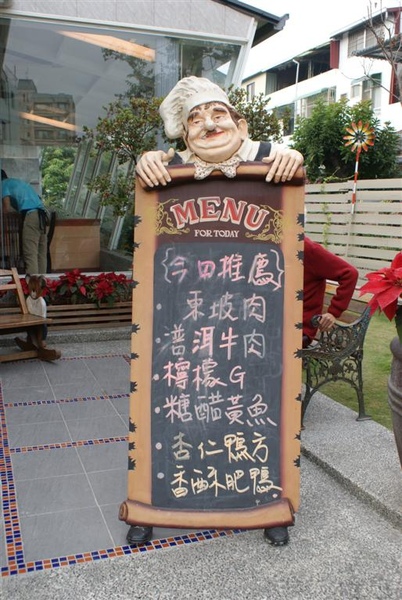 MENU
FOR TODAY
{今日推薦}
東坡肉
·普洱牛肉
·檸檬G
·糖醋黃魚
·杏仁鴨方
·香酥肥鴨